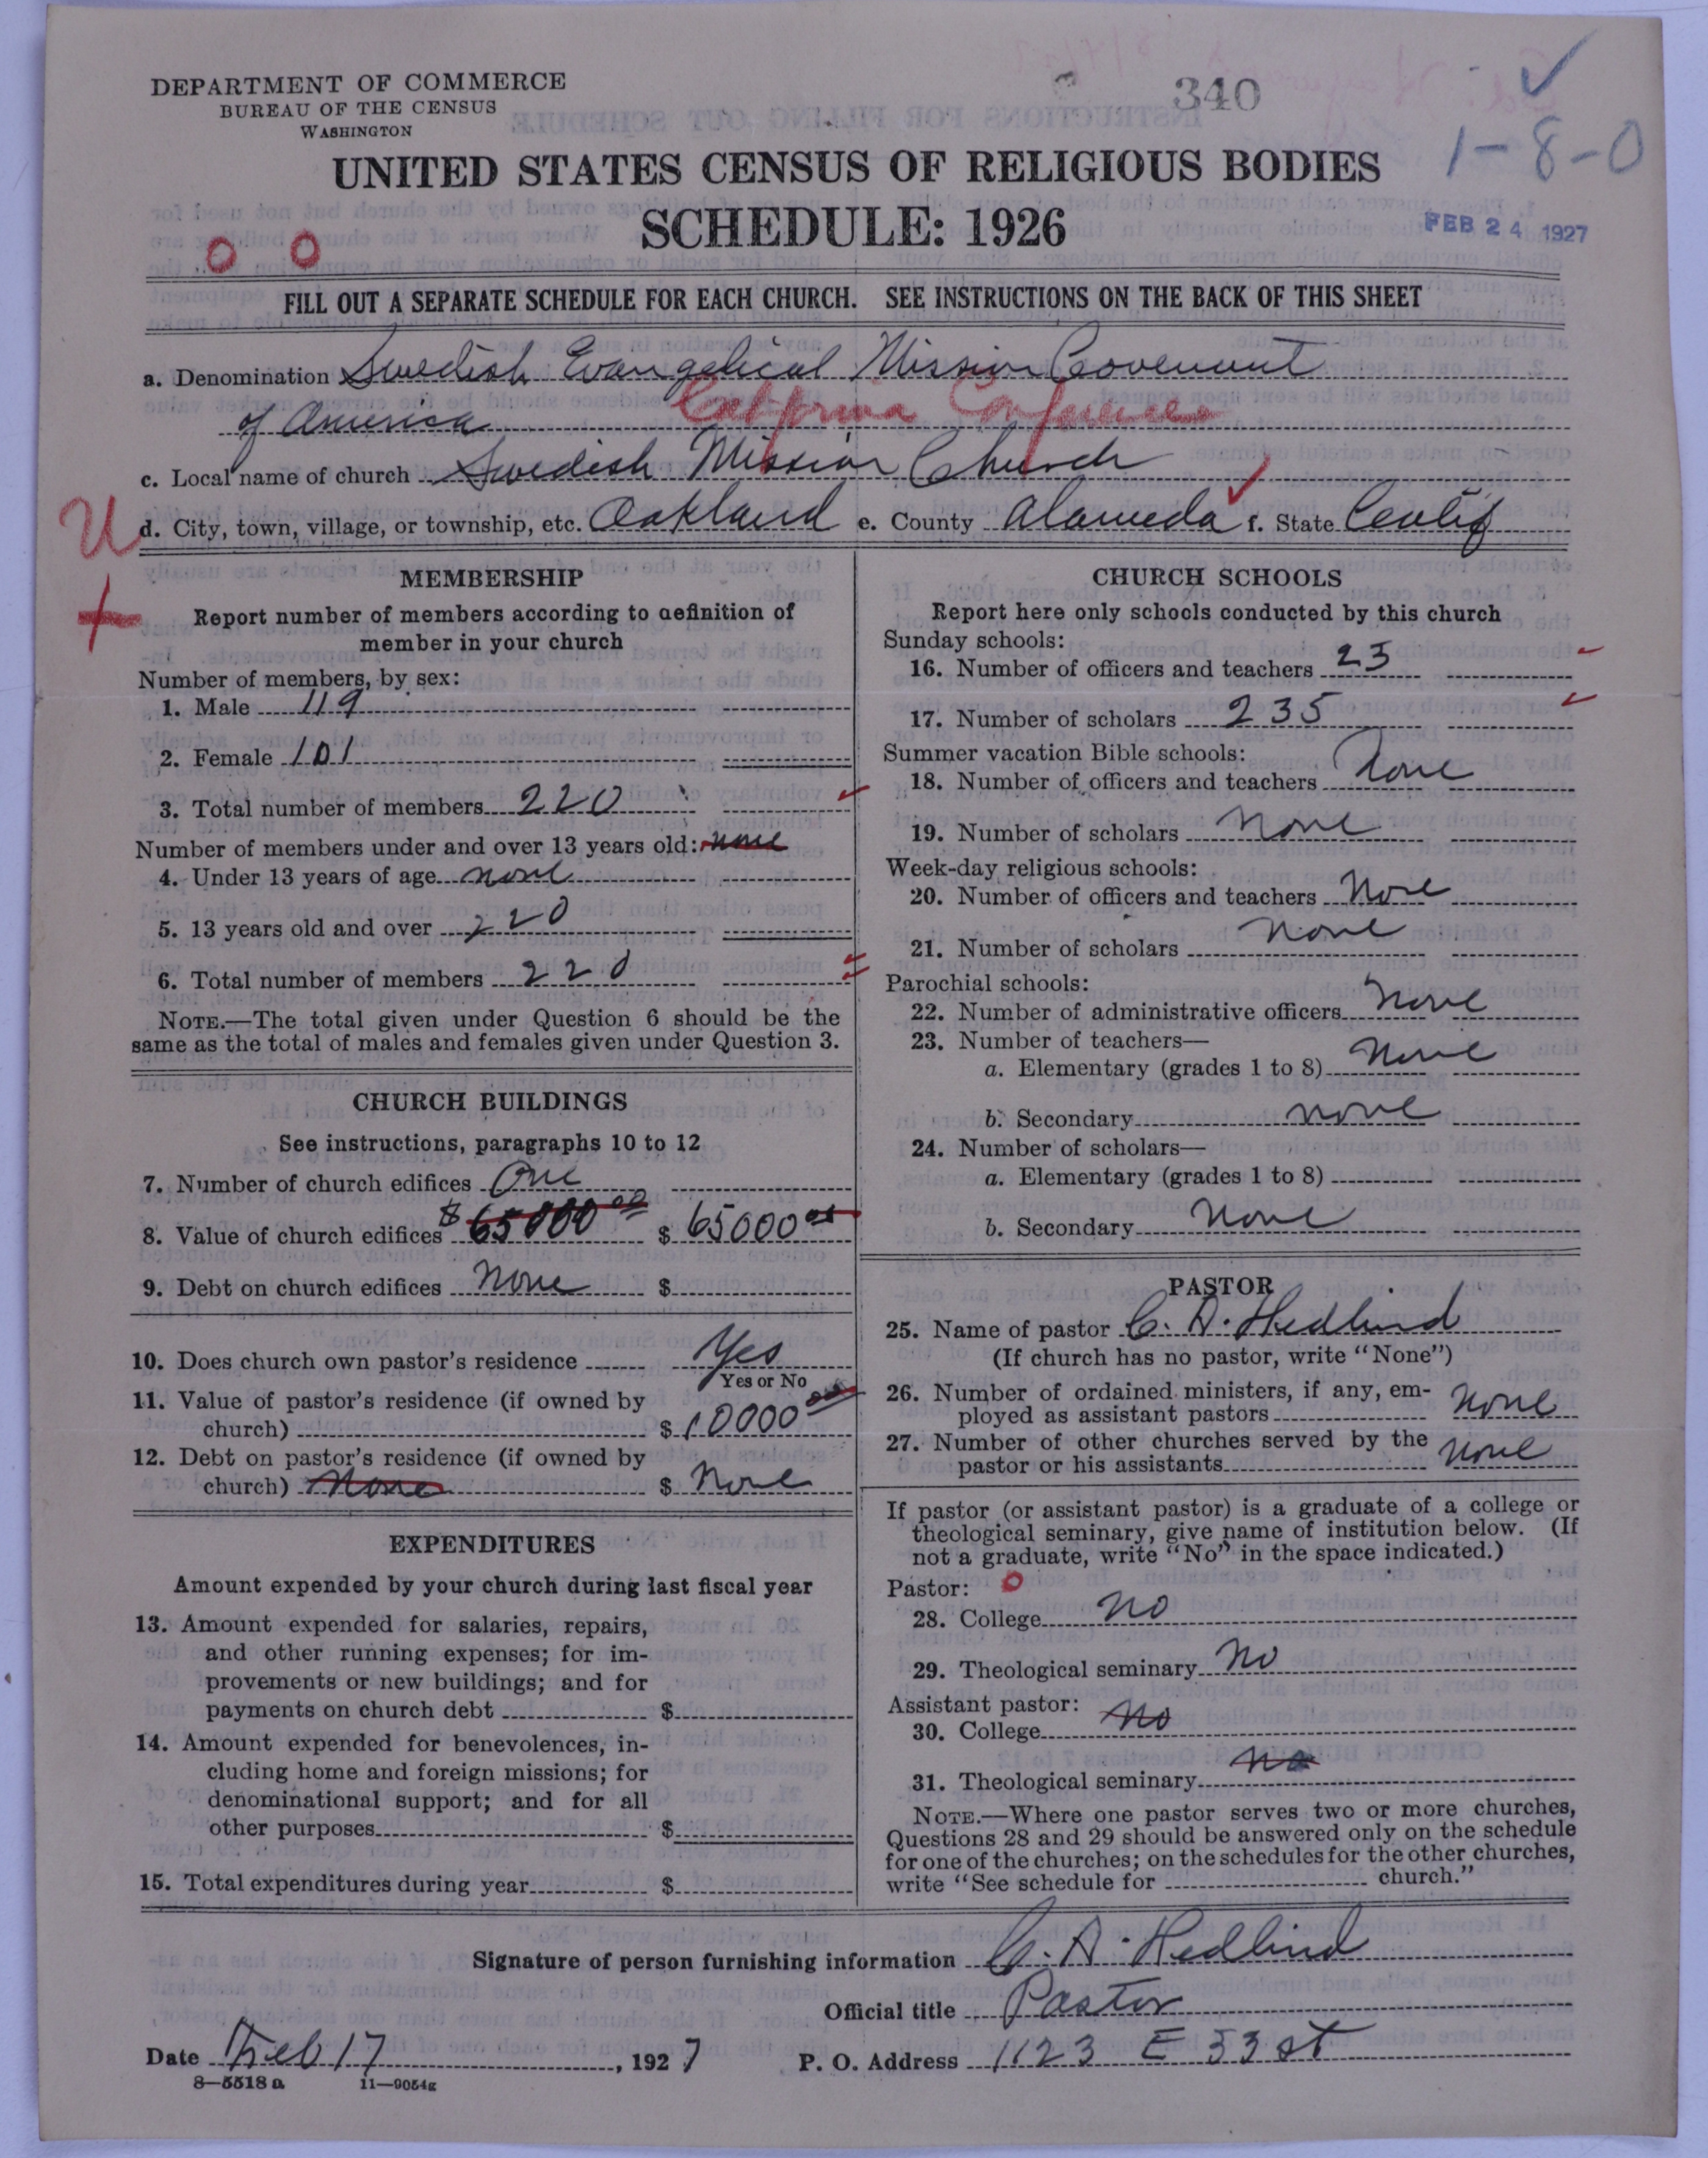 DEPARTMENT OF COMMERCE
BUREAU OF THE CENSUS
WASHINGTON
340
1-8-0
UNITED STATES CENSUS OF RELIGIOUS BODIES
SCHEDULE: 1926
FEB 24 1927
0 0
FILL OUT A SEPARATE SCHEDULE FOR EACH CHURCH. SEE INSTRUCTIONS ON THE BACK OF THIS SHEET
a. Denomination Swedish Evangelical Mission Covenant
of America California Conference
c. Local name of church Swedish Mission Church
U
d. City, town, village, or township, etc. Oakland e. County Alameda f. State Calif
MEMBERSHIP
Report number of members according to definition of
member in your church
Number of members, by sex:
1. Male 119
2. Female 101
3. Total number of members 220
Number of members under and over 13 years old: none
4. Under 13 years of age none
5. 13 years old and over 220
6. Total number of members 220
NOTE.—The total given under Question 6 should be the
same as the total of males and females given under Question 3.
CHURCH BUILDINGS
See instructions, paragraphs 10 to 12
7. Number of church edifices One
8. Value of church edifices $65000 00 $ 65000 00
9. Debt on church edifices None $
10. Does church own pastor's residence Yes
Yes or No
11. Value of pastor's residence (if owned by
church) $ 10000 00
12. Debt on pastor's residence (if owned by
church) None $ None
EXPENDITURES
Amount expended by your church during last fiscal year
13. Amount expended for salaries, repairs,
and other running expenses; for im-
provements or new buildings; and for
payments on church debt $
14. Amount expended for benevolences, in-
cluding home and foreign missions; for
denominational support; and for all
other purposes $
15. Total expenditures during year $
CHURCH SCHOOLS
Report here only schools conducted by this church
Sunday schools:
16. Number of officers and teachers 23
17. Number of scholars 235
Summer vacation Bible schools:
18. Number of officers and teachers None
19. Number of scholars None
Week-day religious schools:
20. Number of officers and teachers None
21. Number of scholars None
Parochial schools:
22. Number of administrative officers None
23. Number of teachers—
a. Elementary (grades 1 to 8) None
b. Secondary none
24. Number of scholars—
a. Elementary (grades 1 to 8)
b. Secondary None
PASTOR
25. Name of pastor C. A. Hedlund
(If church has no pastor, write "None")
26. Number of ordained ministers, if any, em-
ployed as assistant pastors None
27. Number of other churches served by the
pastor or his assistants None
If pastor (or assistant pastor) is a graduate of a college or
theological seminary, give name of institution below. (If
not a graduate, write "No" in the space indicated.)
Pastor: 0
28. College No
29. Theological seminary No
Assistant pastor:
30. College No
31. Theological seminary No
NOTE.—Where one pastor serves two or more churches,
Questions 28 and 29 should be answered only on the schedule
for one of the churches; on the schedules for the other churches,
write "See schedule for church."
Signature of person furnishing information C. A. Hedlund
Official title Pastor
Date Feb 17, 1927 P. O. Address 1123 E 33 st
8—5518 a 11—9054g